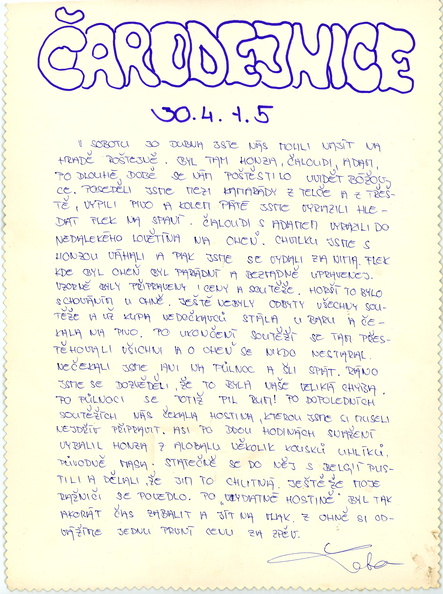 ČARODEJNICE
30.4. - 1.5
V SOBOTU 30 DUBNA JSTE NÁS MOHLI NAJÍT NA
HRADĚ ROŠTEJNĚ. BYL TAM HONZA, ČALOUDI, ADAM,
PO DLOUHÉ, DOBĚ SE NÁM POŠTĚSTILO UVIDĚT
CE. POSEDĚLI JSME MEZI KAMARÁDY Z TELČE A Z TŘEŠ-
TĚ, VYPILI PIVO A KOLEM PÁTÉ JSME VYRAZILI HLE-
DAT FLEK NA SPANÍ. ČALOUDI S ADAMEM VYRAZILI DO
NEDALEKÉHO LOVĚTÍNA NA OHEŇ. CHVILKU JSME S
HONZOU VÁHALI A PAK JSME SE VYDALI ZA NIMA. FLEK
KDE BYL OHEŇ BYL PARÁDNÍ A BEZVADNĚ UPRAVENEJ.
VZORNĚ BYLY PŘIPRAVENY I CENY A SOUTĚŽE. HORŠÍ TO BYLO
S CHOVÁNÍM U OHNĚ. JEŠTĚ NEBYLY ODBYTY VŠECHNY SOU-
TĚŽE A UŽ KUPA NEDOČKAVCŮ STÁLA U BARU A ČE-
KALA NA PIVO. PO UKONČENÍ SOUTĚŽÍ SE TAM PŘES-
TĚHOVALI VŠICHNI A O OHEŇ SE NIKDO NESTARAL.
NEČEKALI JSME ANI NA PŮLNOC A ŠLI SPÁT. RÁNO
JSME SE DOZVĚDĚLI, ŽE TO BYLA NAŠE VELIKÁ CHYBA.
PO PŮLNOCI SE TOTIŽ PIL RUM! PO DOPOLEDNÍCH
SOUTĚŽÍCH NÁS ČEKALA HOSTINA, KTEROU JSME SI MUSELI
NEJDŘÍV PŘIPRAVIT. ASI PO DVOU HODINÁCH SNAŽENÍ
VYBALIL HONZA Z ALOBALU NĚKOLIK KOUSKŮ UHLÍKŮ,
PŮVODNĚ MASA. STATEČNĚ SE DO NĚJ S BELGIÍ PUS-
TILI A DĚLALI, ŽE JIM TO CHUTNÁ. JEŠTĚ ŽE MOJE
RAŽNIČÍ SE POVEDLO. PO „VYDATNÉ HOSTINĚ" BYL TAK
AKORÁT ČAS ZABALIT A JÍT NA VLAK. Z OHNĚ SI OD-
VÁŽÍME JEDNU PRVNÍ CENU ZA ZPĚV.